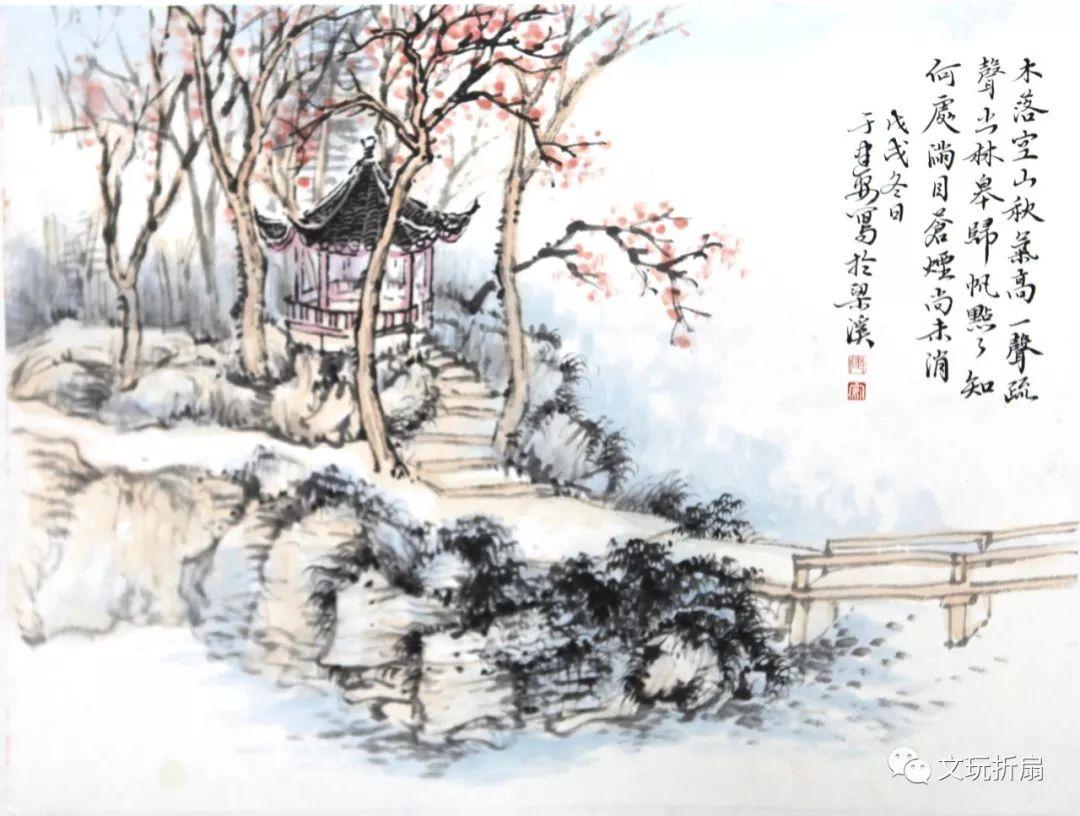 木落空山秋氣高一聲疏
聲出林皋歸帆點々知
何處滿目蒼煙尚未消
戊戌冬日
于寫於梁溪
文玩折扇